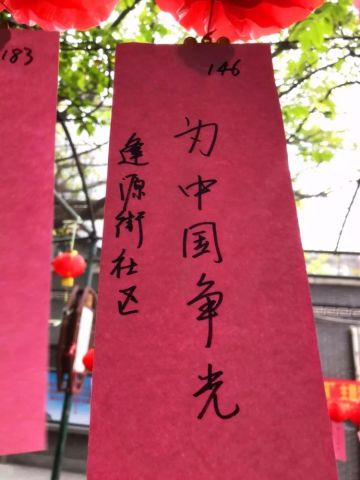 183
146
为中国争光
逢源街社区